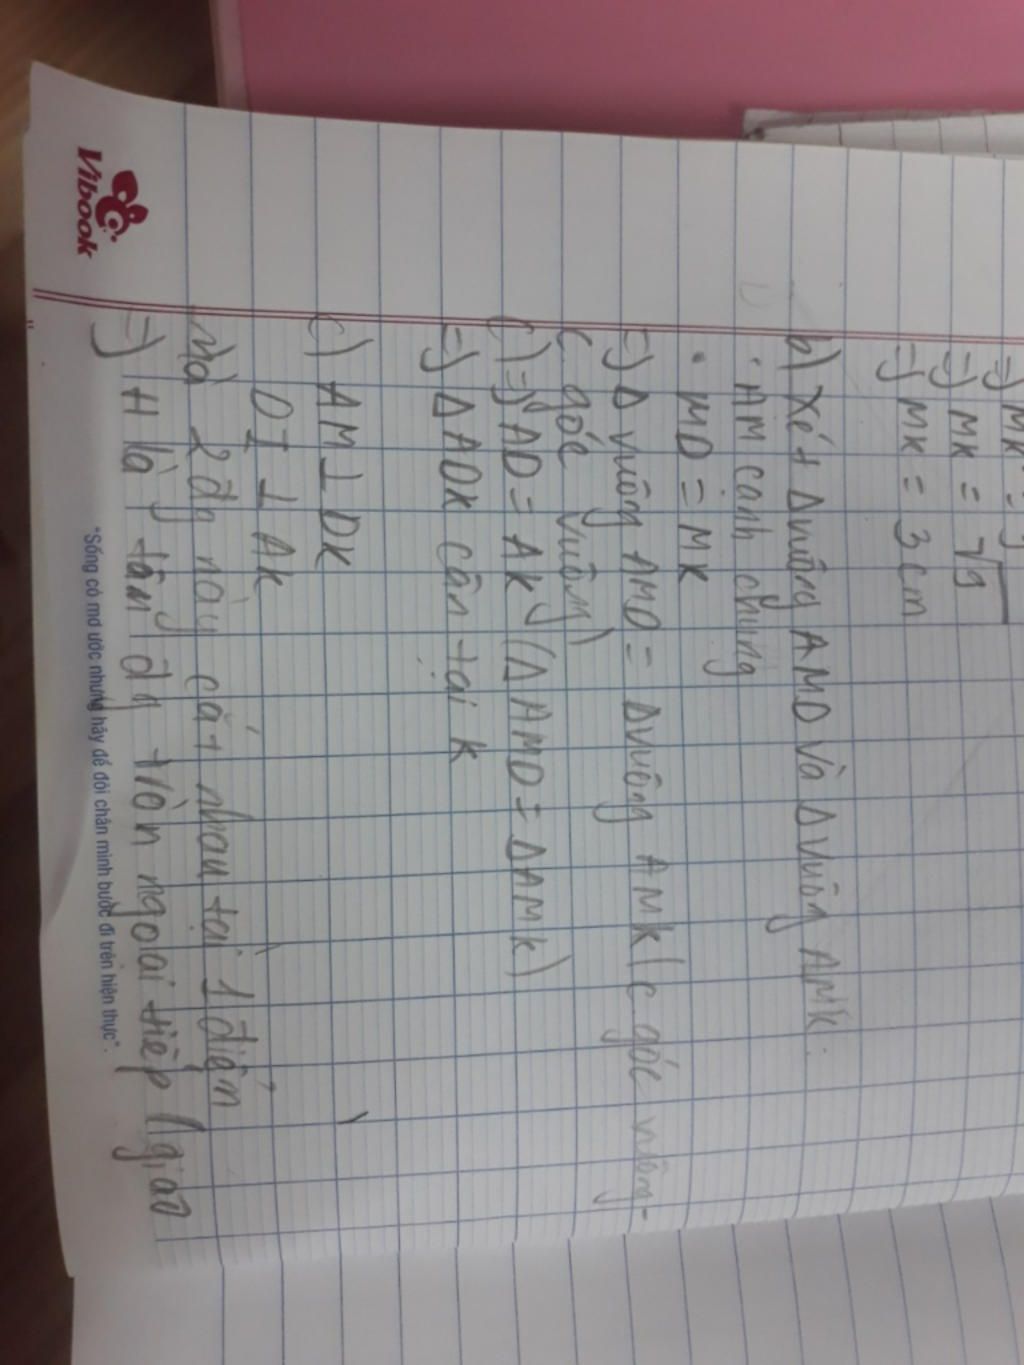 =) MK
=) MK = √9
=) MK = 3 cm
b) Xét Δvuông AMD và Δvuông AMK.
· AM cạnh chung
· MD = MK
=) Δ vuông AMD = Δvuông AMK (c. góc vuông-
c góc vuông)
() =) AD = AK (ΔAMD = ΔAMK)
=) Δ ADK cân tại K
c) AM ⊥ DK
DI ⊥ AK
Mà 2 đg này cắt nhau tại 1 điểm
=) H là tâm đg tròn ngoài tiếp (giao
Vibook
"Sống có mơ ước nhưng hãy để đôi chân mình bước đi trên hiện thực".